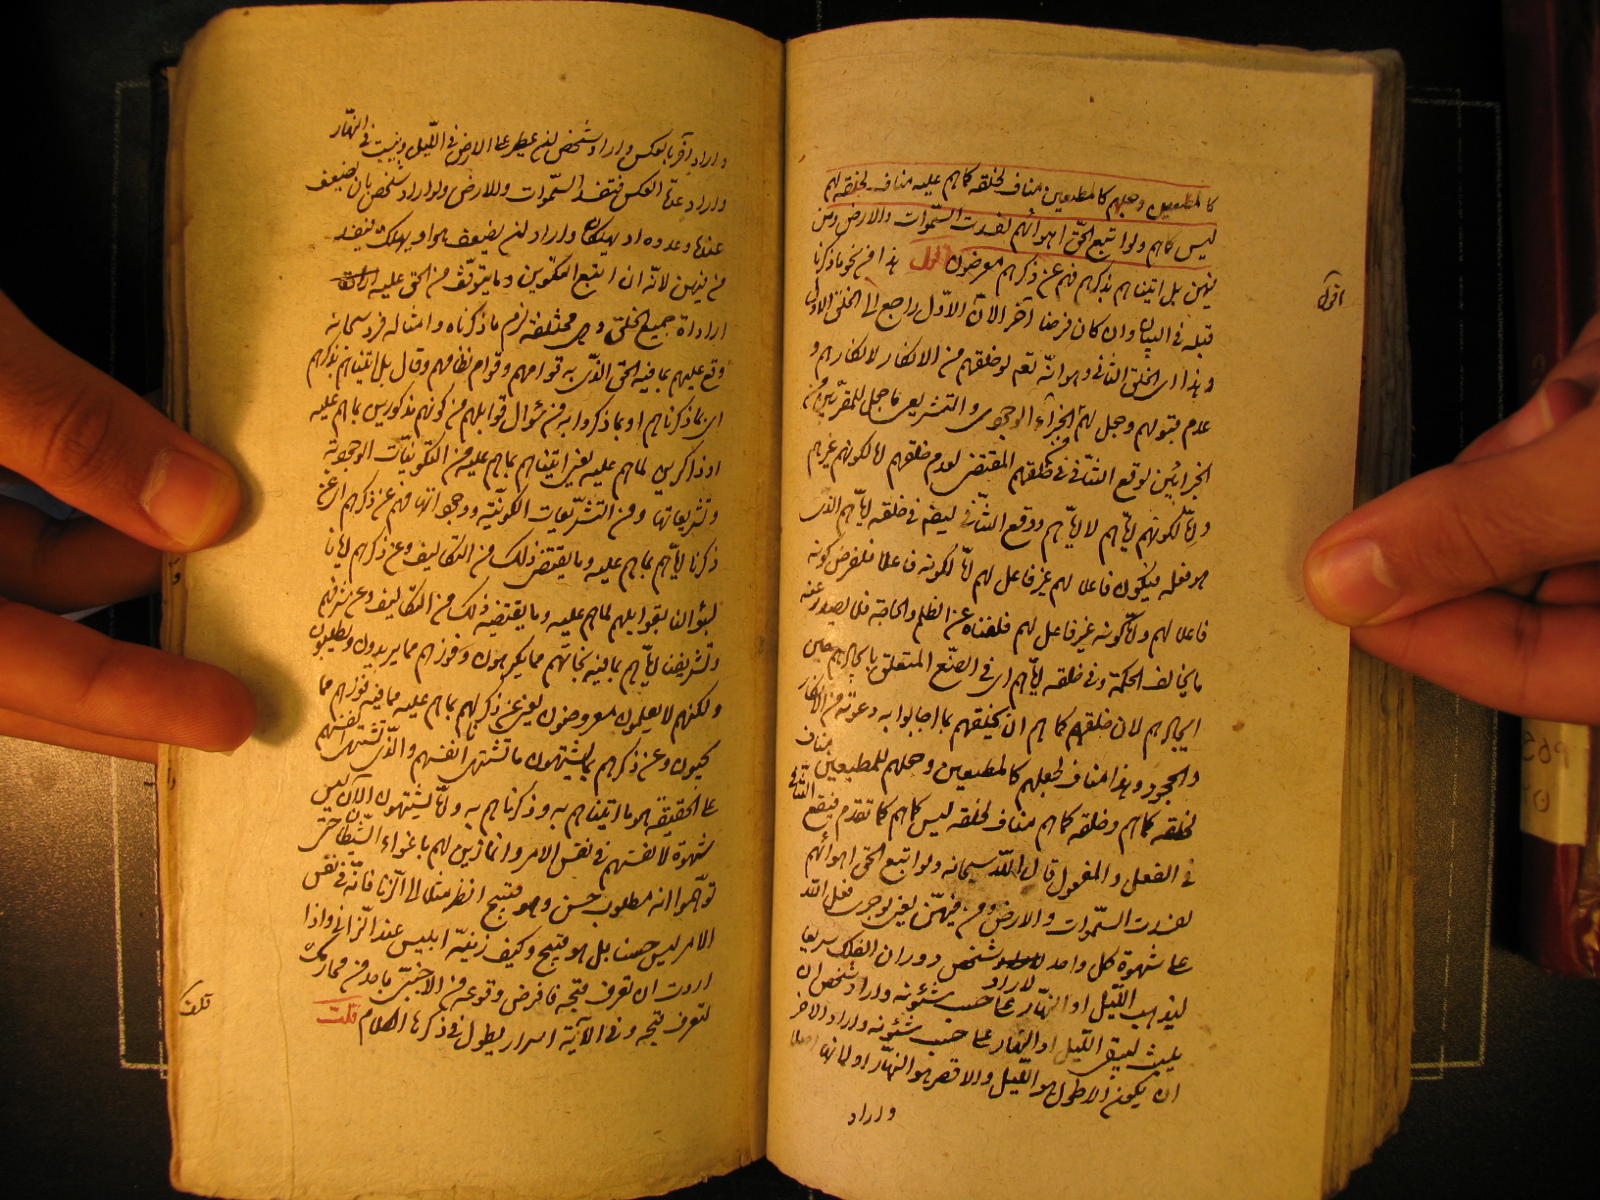 كالمطيعين وجعلهم كالمطيعين مناف لخلقه كما هم عليه مناف لخلقه لهم
ليس كما هم ولو اتبع الحق اهوائهم لفسدت السموات والارض ومن
فيهن بل اتيناهم بذكرهم فهم عن ذكرهم معرضون اقول هذا من نحو ما ذكرنا
اقول
قبله في البيان وان كان فرضا آخر الا ان الاول راجع الى الخلق الاول
وهذا الى الخلق الثاني وهو انه تعم لو خلقهم من الانكار لانكارهم و
عدم قبولهم وجعل لهم الجزاء الوجودي والتشريعي ما جعل للمقرين من
الجزائين لوقع التنافي في خلقهم المقتضي لعدم خلقهم لما لكونهم غيرهم
ولما لكونهم اياهم لا اياهم ووقع التنافي ايضا في خلقه اياهم الذي
هو فعله فيكون فاعلا لهم غير فاعل لهم اما لكونه فاعلا فلفرض كونه
فاعلا لهم واما كونه غير فاعل لهم فلغناه عن الظلم والحاجة فلا يصدر عنه
ما يخالف الحكمة وفي خلقه اياهم اي في الصنع المتعلق بايجادهم حين
ايجادهم لان خلقهم كما هم ان يخلقهم بما اجابوا به دعوته من الانكار
والجحود وهذا مناف لجعلهم كالمطيعين وجعلهم كالمطيعين مناف
لخلقه كما هم وخلقه كما هم مناف لخلقه ليس كما هم كما تقدم فيقع التنافي
في الفعل والمفعول قال الله سبحانه ولو اتبع الحق اهوائهم
لفسدت السموات والارض ومن فيهن يعني لو جرى فعل الله
على شهوة كل واحد لاراد شخص دوران الفلك سريعا
ليذهب الليل او النهار على حسب شئونه واراد شخص ان
يلبث ليبقى الليل او النهار على حسب شئونه واراد الاخر
ان يكون الاطول هو الليل والاقصر هو النهار او لا نهار اصلا
واراد
واراد آخر بالعكس واراد شخص ان يمطر على الارض في الليل وينبت في النهار
واراد عدو العكس فتفسد السموات والارض ولو اراد شخص بان يضعف
عنها وعدوه او يهلكان واراد ان يضعف هو او يهلك فيفسد
من فيهن لانه ان اتبع التكوين وما يتوقف من الحق عليه
ارادة جميع الخلق وهي مختلفة لزم ما ذكرناه وامثاله فرد سبحانه
وقع عليهم بما فيه الحق الذي به قوامهم وقوام نظامهم وقال بل اتيناهم بذكرهم
اي بما ذكرناهم او بما ذكروا به من سؤال قوابلهم من كونهم مذكورين بما هم عليه
او ذاكرين لما هم عليه يعني اتيناهم بما هم عليه من التكوينات الوجودية
وتشريعاتها ومن التشريعات الكونية ووجوداتها فهم عن ذكرهم اي عن
ذكرنا اياهم بما هم عليه وما يقتضي ذلك من التكاليف وعن ذكرهم ايانا
بسؤالنا بقوابلهم لما هم عليه وما يقتضيه ذلك من التكاليف وعن شرفهم
وتشريفنا اياهم بما فيه نجاتهم مما يكرهون وفوزهم مما يريدون ويطلبون
ولكنهم لا يعلمون معرضون يعني عن ذكرنا لهم بما هم عليه مما فيه فوزهم مما
يحبون وعن ذكرهم بما يشتهون ما تشتهي انفسهم والذي تشتهي انفسهم
على الحقيقة هو ما اتيناهم به وذكرناهم به وما يشتهون الآن ليس
شهوة لانفسهم في نفس الامر وانما زين لهم باغواء الشيطان حتى
توهموا انه مطلوب حسن وهو قبيح انظر مثلا الى الزنا فانه في نفس
الامر ليس حسنا بل هو قبيح وكيف زينه ابليس عند الزاني واذا
اردت ان تعرف قبحه فافرض وقوعه من الاجنبي باحد من محارمك
لتعرف قبحه وفي الآية اسرار يطول في ذكرها الكلام قلت
قلت